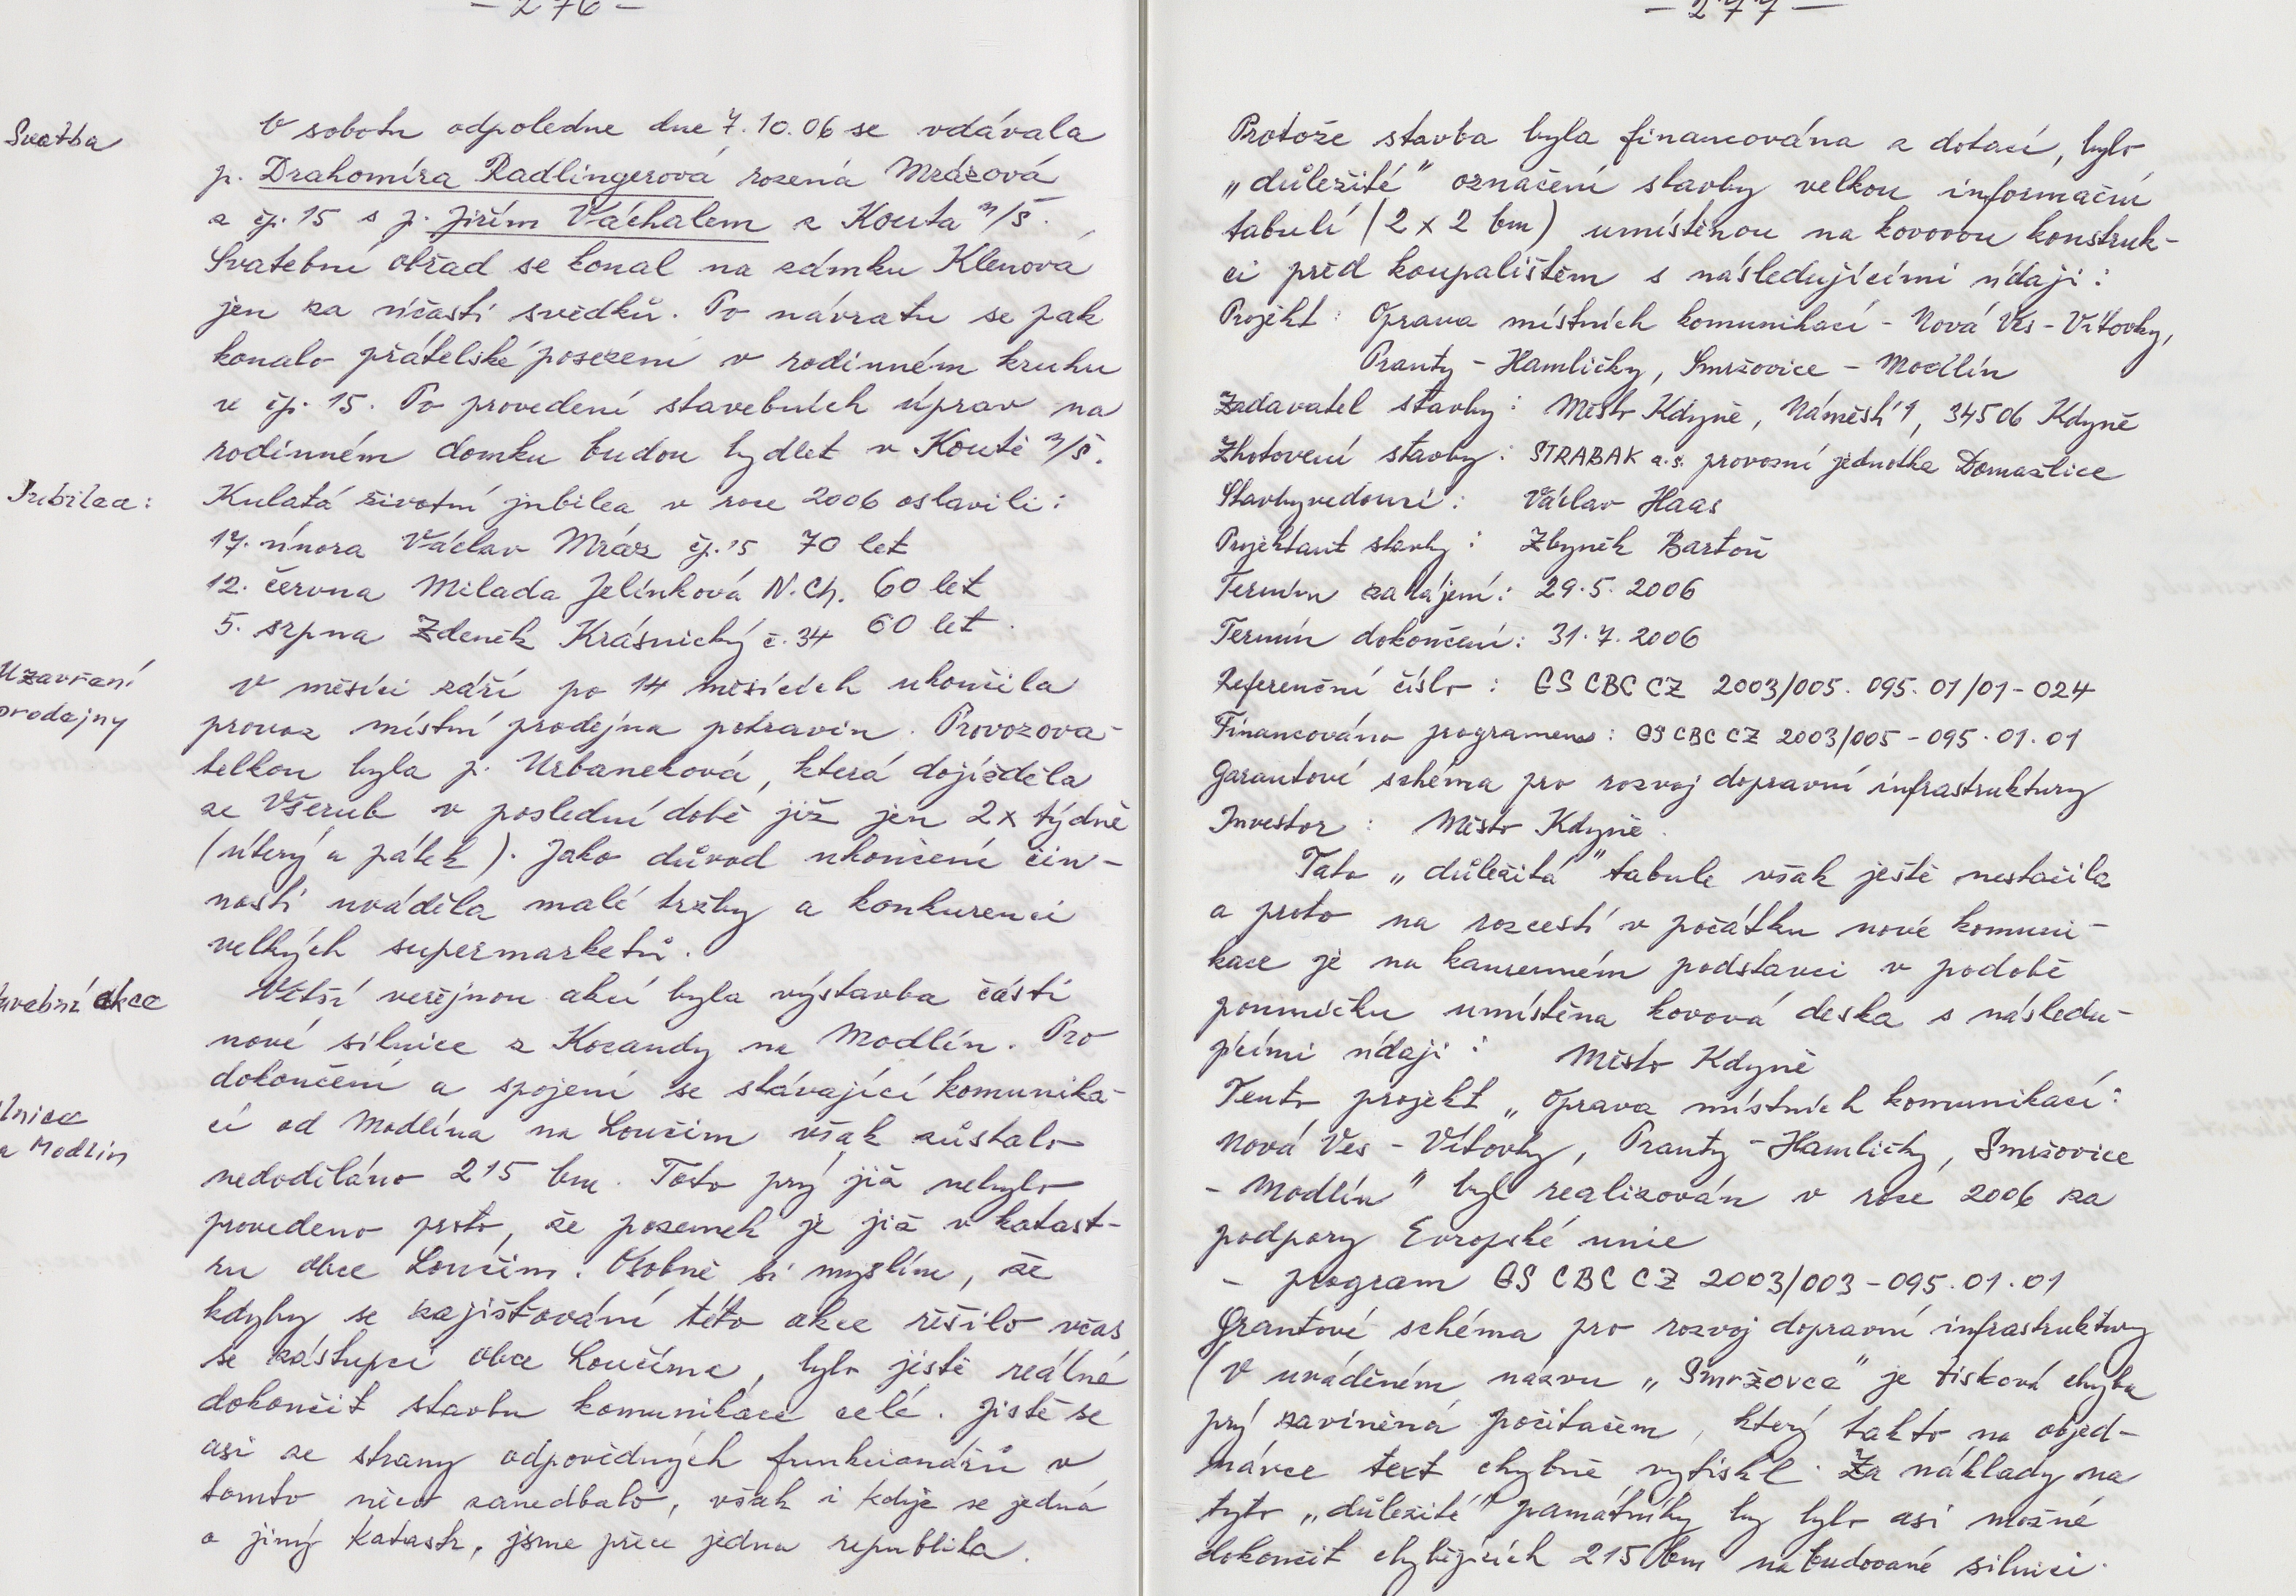 – 276 –
Svatba
V sobotu odpoledne dne 7.10.06 se vdávala
p. Drahomíra Radlingerová rozená Mrázová
z čp. 15 s p. Jiřím Váchalem z Kouta n/Š.
Svatební obřad se konal na zámku Klenová
jen za účasti svědků. Po návratu se pak
konalo přátelské posezení v rodinném kruhu
v čp. 15. Po provedení stavebních úprav na
rodinném domku budou bydlet v Koutě n/Š.
Jubilea:
Kulatá životní jubilea v roce 2006 oslavili:
17. února Václav Mráz čp. 15 70 let
12. června Milada Jelínková N.Ch. 60 let
5. srpna Zdeněk Krásnický č. 34 60 let.
Uzavření
prodejny
V měsíci září po 14 měsících ukončila
provoz místní prodejna potravin. Provozova-
telkou byla p. Urbaneková, která dojížděla
ze Všerub v poslední době již jen 2x týdně
(úterý a pátek). Jako důvod ukončení čin-
nosti uváděla malé tržby a konkurenci
velkých supermarketů.
avební akce
Větší veřejnou akcí byla výstavba části
nové silnice z Kocandy na Modlín. Pro
dokončení a spojení se stávající komunika-
lnice
a Modlín
cí od Modlína na Loučim však zůstalo
nedoděláno 215 bm. Toto prý již nebylo
provedeno proto, že pozemek je již v katast-
ru obce Loučim. Osobně si myslím, že
kdyby se zajišťování této akce řešilo včas
se zástupci obce Loučíma, bylo jistě reálné
dokončit stavbu komunikace celé. Jistě se
asi ze strany odpovědných funkcionářů v
tomto něco zanedbalo, však i když se jedná
o jiný katastr, jsme přece jedna republika.
– 277 –
Protože stavba byla financována z dotací, bylo
„důležité" označení stavby velkou informační
tabulí (2 x 2 bm) umístěnou na kovovou konstruk-
ci před koupalištěm s následujícími údaji:
Projekt: Oprava místních komunikací - Nová Ves - Vítovky,
Pranty - Hamličky, Smržovice - Modlín
Zadavatel stavby: Město Kdyně, Náměstí 1, 34506 Kdyně
Zhotovení stavby: STRABAK a.s. provozní jednotka Domažlice
Stavbyvedoucí: Václav Haas
Projektant stavby: Zbyněk Bartoň
Termín zahájení: 29.5.2006
Termín dokončení: 31.7.2006
Referenční číslo: GS CBC CZ 2003/005.095.01/01-024
Financováno programem: GS CBC CZ 2003/005-095.01.01
Garantové schéma pro rozvoj dopravní infrastruktury
Investor: Město Kdyně.
Tato „důležitá" tabule však ještě nestačila
a proto na rozcestí v počátku nové komuni-
kace je na kamenném podstavci v podobě
pomníčku umístěna kovová deska s následu-
jícími údaji: Město Kdyně
Tento projekt „Oprava místních komunikací:
Nová Ves - Vítovky, Pranty - Hamličky, Smržovice
- Modlín" byl realizován v roce 2006 za
podpory Evropské unie
- program GS CBC CZ 2003/003-095.01.01
Grantové schéma pro rozvoj dopravní infrastruktury
(V uváděném názvu „Smržovce" je tisková chyba
prý zaviněná počítačem, který takto na objed-
návce text chybně vytiskl. Za náklady na
tyto „důležité" památníky by bylo asi možné
dokončit chybějících 215 bm nabudované silnici.